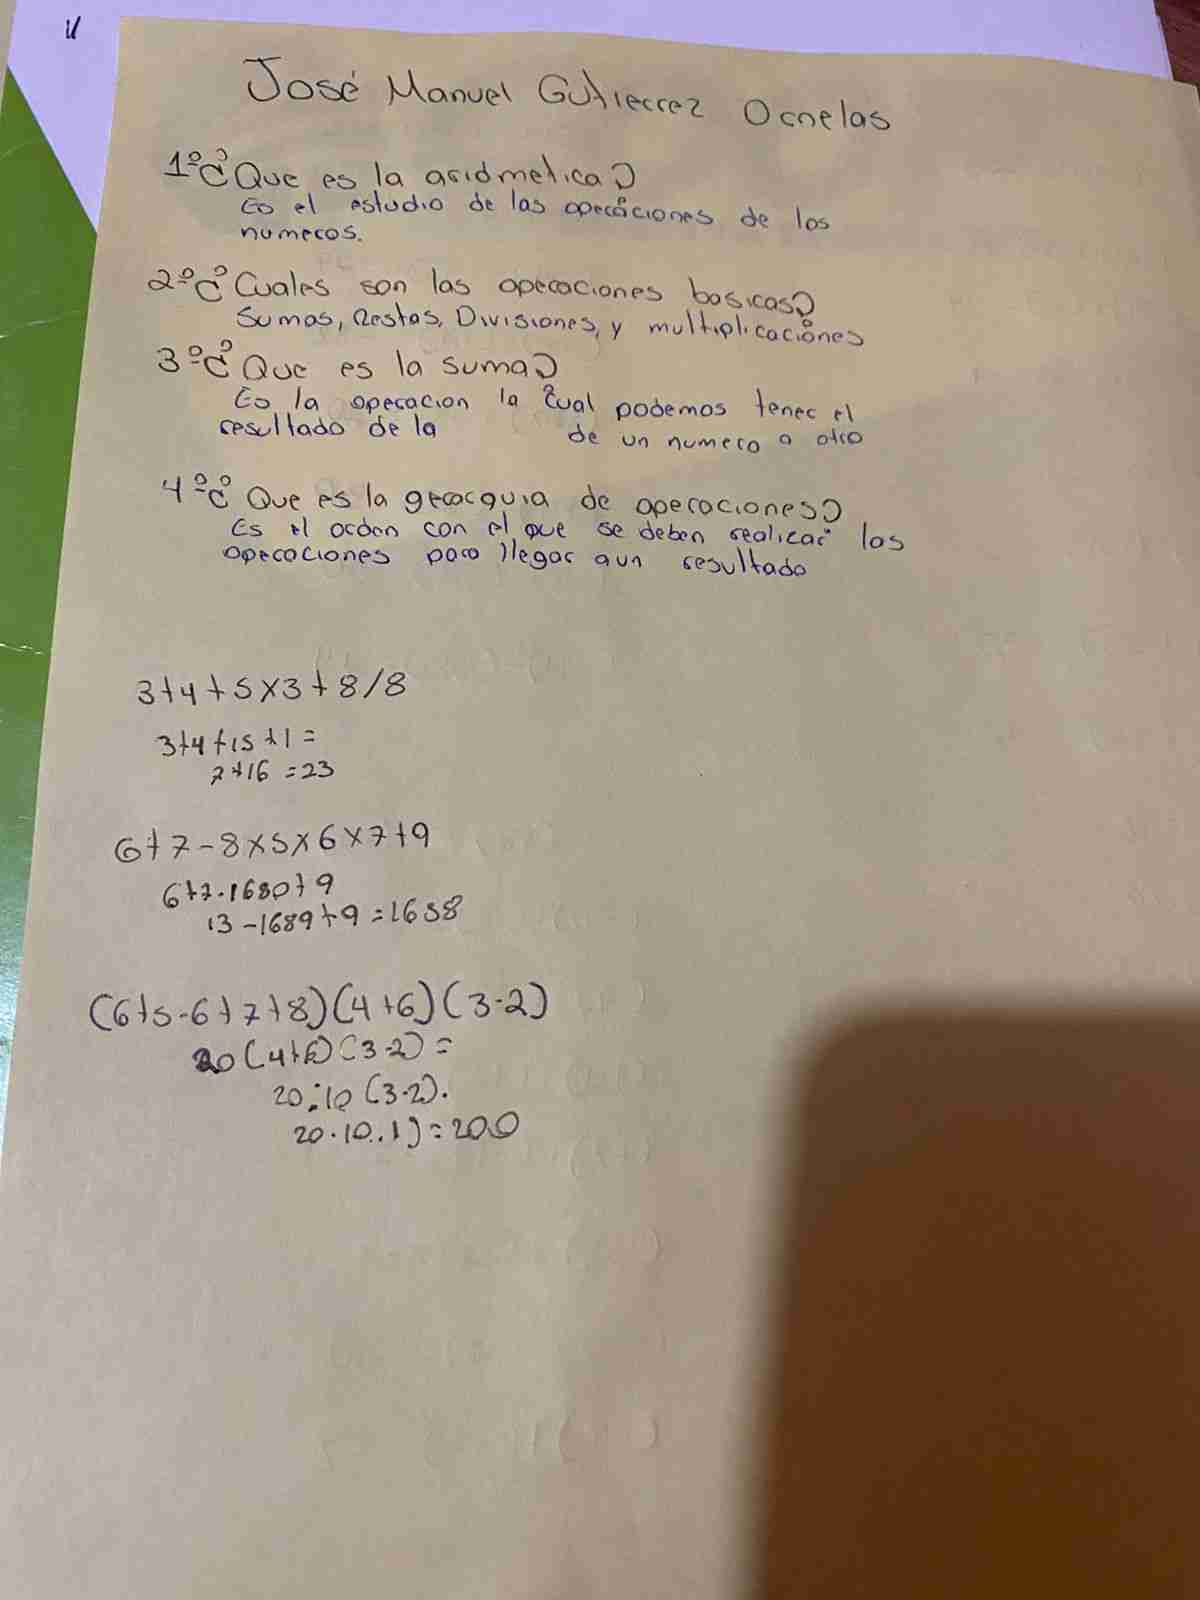 José Manuel Gutierrez Ornelas
1º ¿Que es la aridmetica?
Es el estudio de las operaciones de los
numeros.
2º ¿Cuales son las operaciones basicas?
Sumas, Restas, Divisiones, y multiplicaciones
3º ¿Que es la suma?
Es la operacion la cual podemos tener el
resultado de la de un numero a otro
4º ¿Que es la gerarquia de operaciones?
Es el orden con el que se deben realicar las
operaciones para llegar aun resultado
3+4+5x3+8/8
3+4+15+1=
7+16=23
6+7-8x5x6x7+9
6+7-1680+9
13-1689+9=1658
(6+5-6+7+8)(4+6)(3-2)
20(4+6)(3-2)=
20·10(3-2).
20·10·1)=200